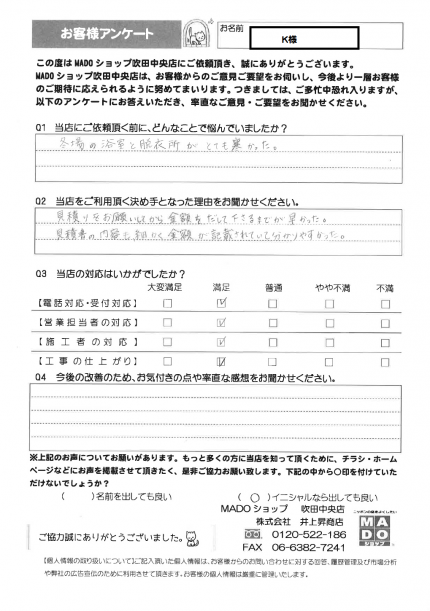 お客様アンケート
お名前
K様
この度はMADOショップ吹田中央店にご依頼頂き、誠にありがとうございます。
MADOショップ吹田中央店は、お客様からのご意見ご要望をお伺いし、今後より一層お客様
のご期待に応えられるように努めてまいります。つきましては、ご多忙中恐れ入りますが、
以下のアンケートにお答えいただき、率直なご意見・ご要望をお聞かせください。
Q1 当店にご依頼頂く前に、どんなことで悩んでいましたか？
冬場の浴室と脱衣所がとても寒かった。
Q2 当店をご利用頂く決め手となった理由をお聞かせください。
見積りをお願いしてから金額をだして下さるまでが早かった。
見積書の内容も細かく金額が記載されていて分かりやすかった。
Q3 当店の対応はいかがでしたか？
大変満足 満足 普通 やや不満 不満
【電話対応・受付対応】 □ ☑ □ □ □
【営業担当者の対応】 □ ☑ □ □ □
【施工者の対応】 □ ☑ □ □ □
【工事の仕上がり】 □ ☑ □ □ □
Q4 今後の改善のため、お気付きの点や率直な感想をお聞かせください。
※上記のお声についてお願いがあります。もっと多くの方に当店を知って頂くために、チラシ・ホーム
ページなどにお声を掲載させて頂きたく、是非ご協力お願い致します。下記の中から○印を付けていた
だけないでしょうか？
（ ）名前を出しても良い （ ○ ）イニシャルなら出しても良い
MADOショップ 吹田中央店
株式会社 井上昇商店
0120-522-186
FAX 06-6382-7241
MADO
ショップ
ご協力誠にありがとうございました。
【個人情報の取り扱いについて】ご記入頂いた個人情報は、お客様からのお問い合わせに対する回答、履歴管理及び市場分析
や弊社の広告宣伝のために利用させて頂きます。お客様の個人情報は厳重に管理いたします。